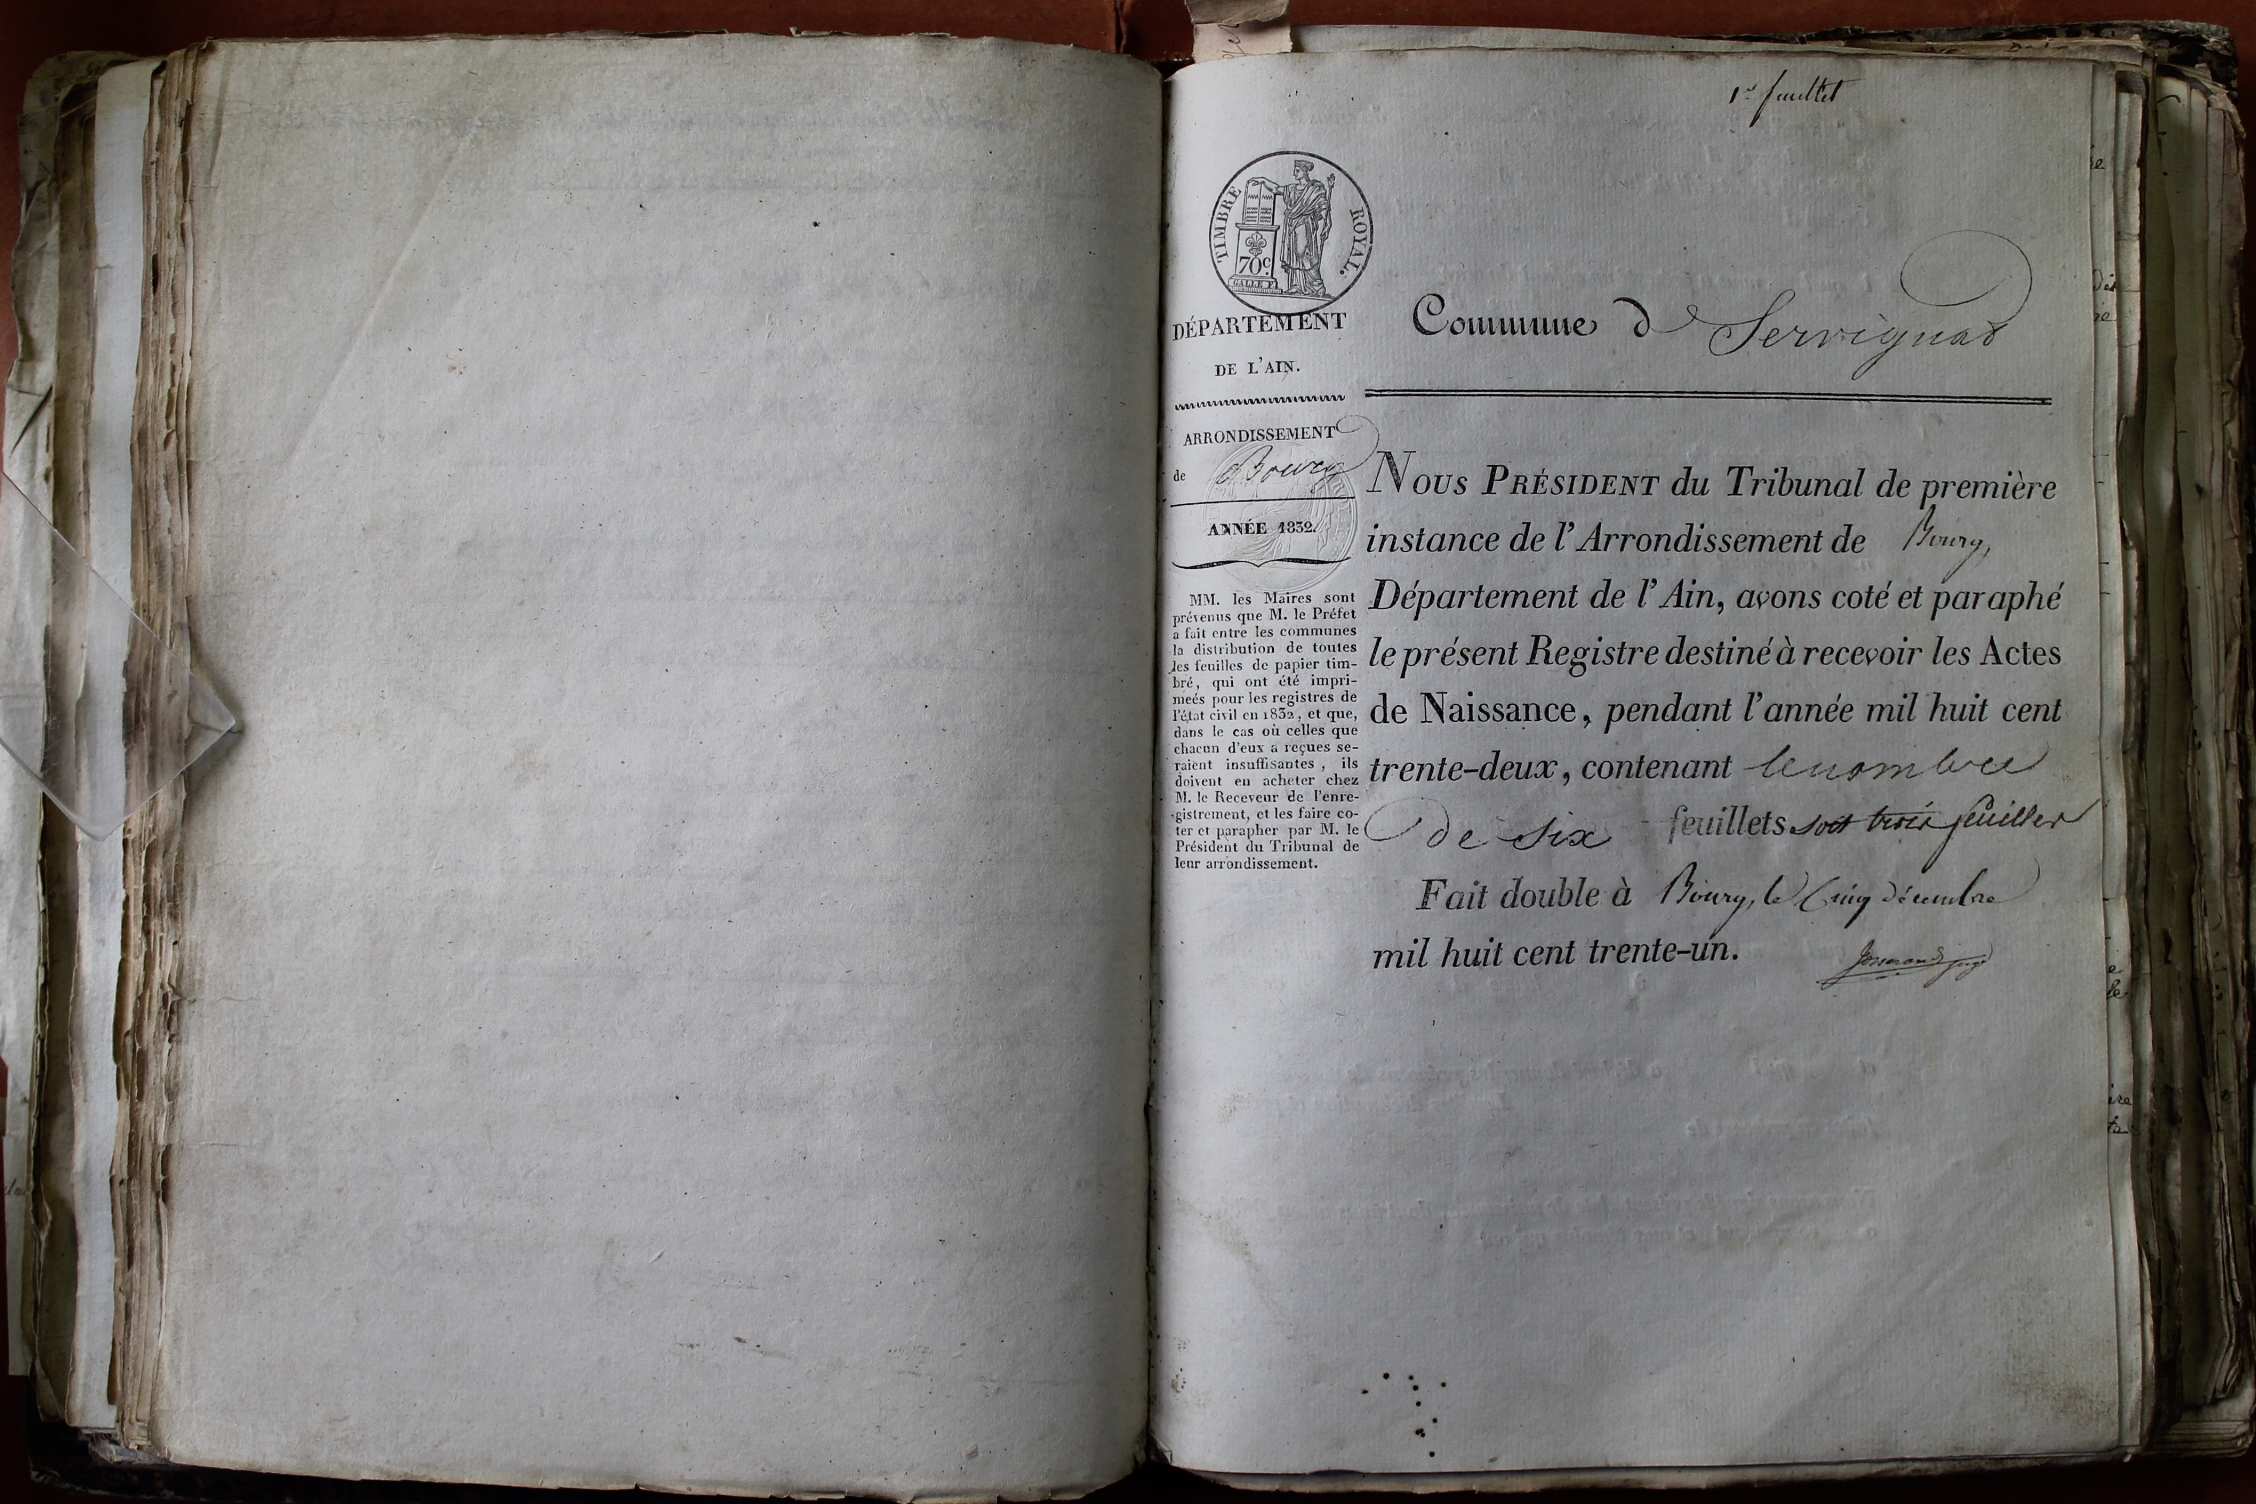 1er feuillet
TIMBRE ROYAL.
70c
DÉPARTEMENT
DE L'AIN.
ARRONDISSEMENT
de Bourg
ANNÉE 1832.
MM. les Maires sont
prévenus que M. le Préfet
a fait entre les communes
la distribution de toutes
les feuilles de papier tim-
bré, qui ont été impri-
meés pour les registres de
l'état civil en 1832, et que,
dans le cas où celles que
chacun d'eux a reçues se-
raient insuffisantes, ils
doivent en acheter chez
M. le Receveur de l'enre-
gistrement, et les faire co-
ter et parapher par M. le
Président du Tribunal de
leur arrondissement.
Commune de Servignat
NOUS PRÉSIDENT du Tribunal de première
instance de l'Arrondissement de Bourg,
Département de l'Ain, avons coté et paraphé
le présent Registre destiné à recevoir les Actes
de Naissance, pendant l'année mil huit cent
trente-deux, contenant le nombre
de six feuillets soit trois feuilles
Fait double à Bourg, le cinq décembre
mil huit cent trente-un.